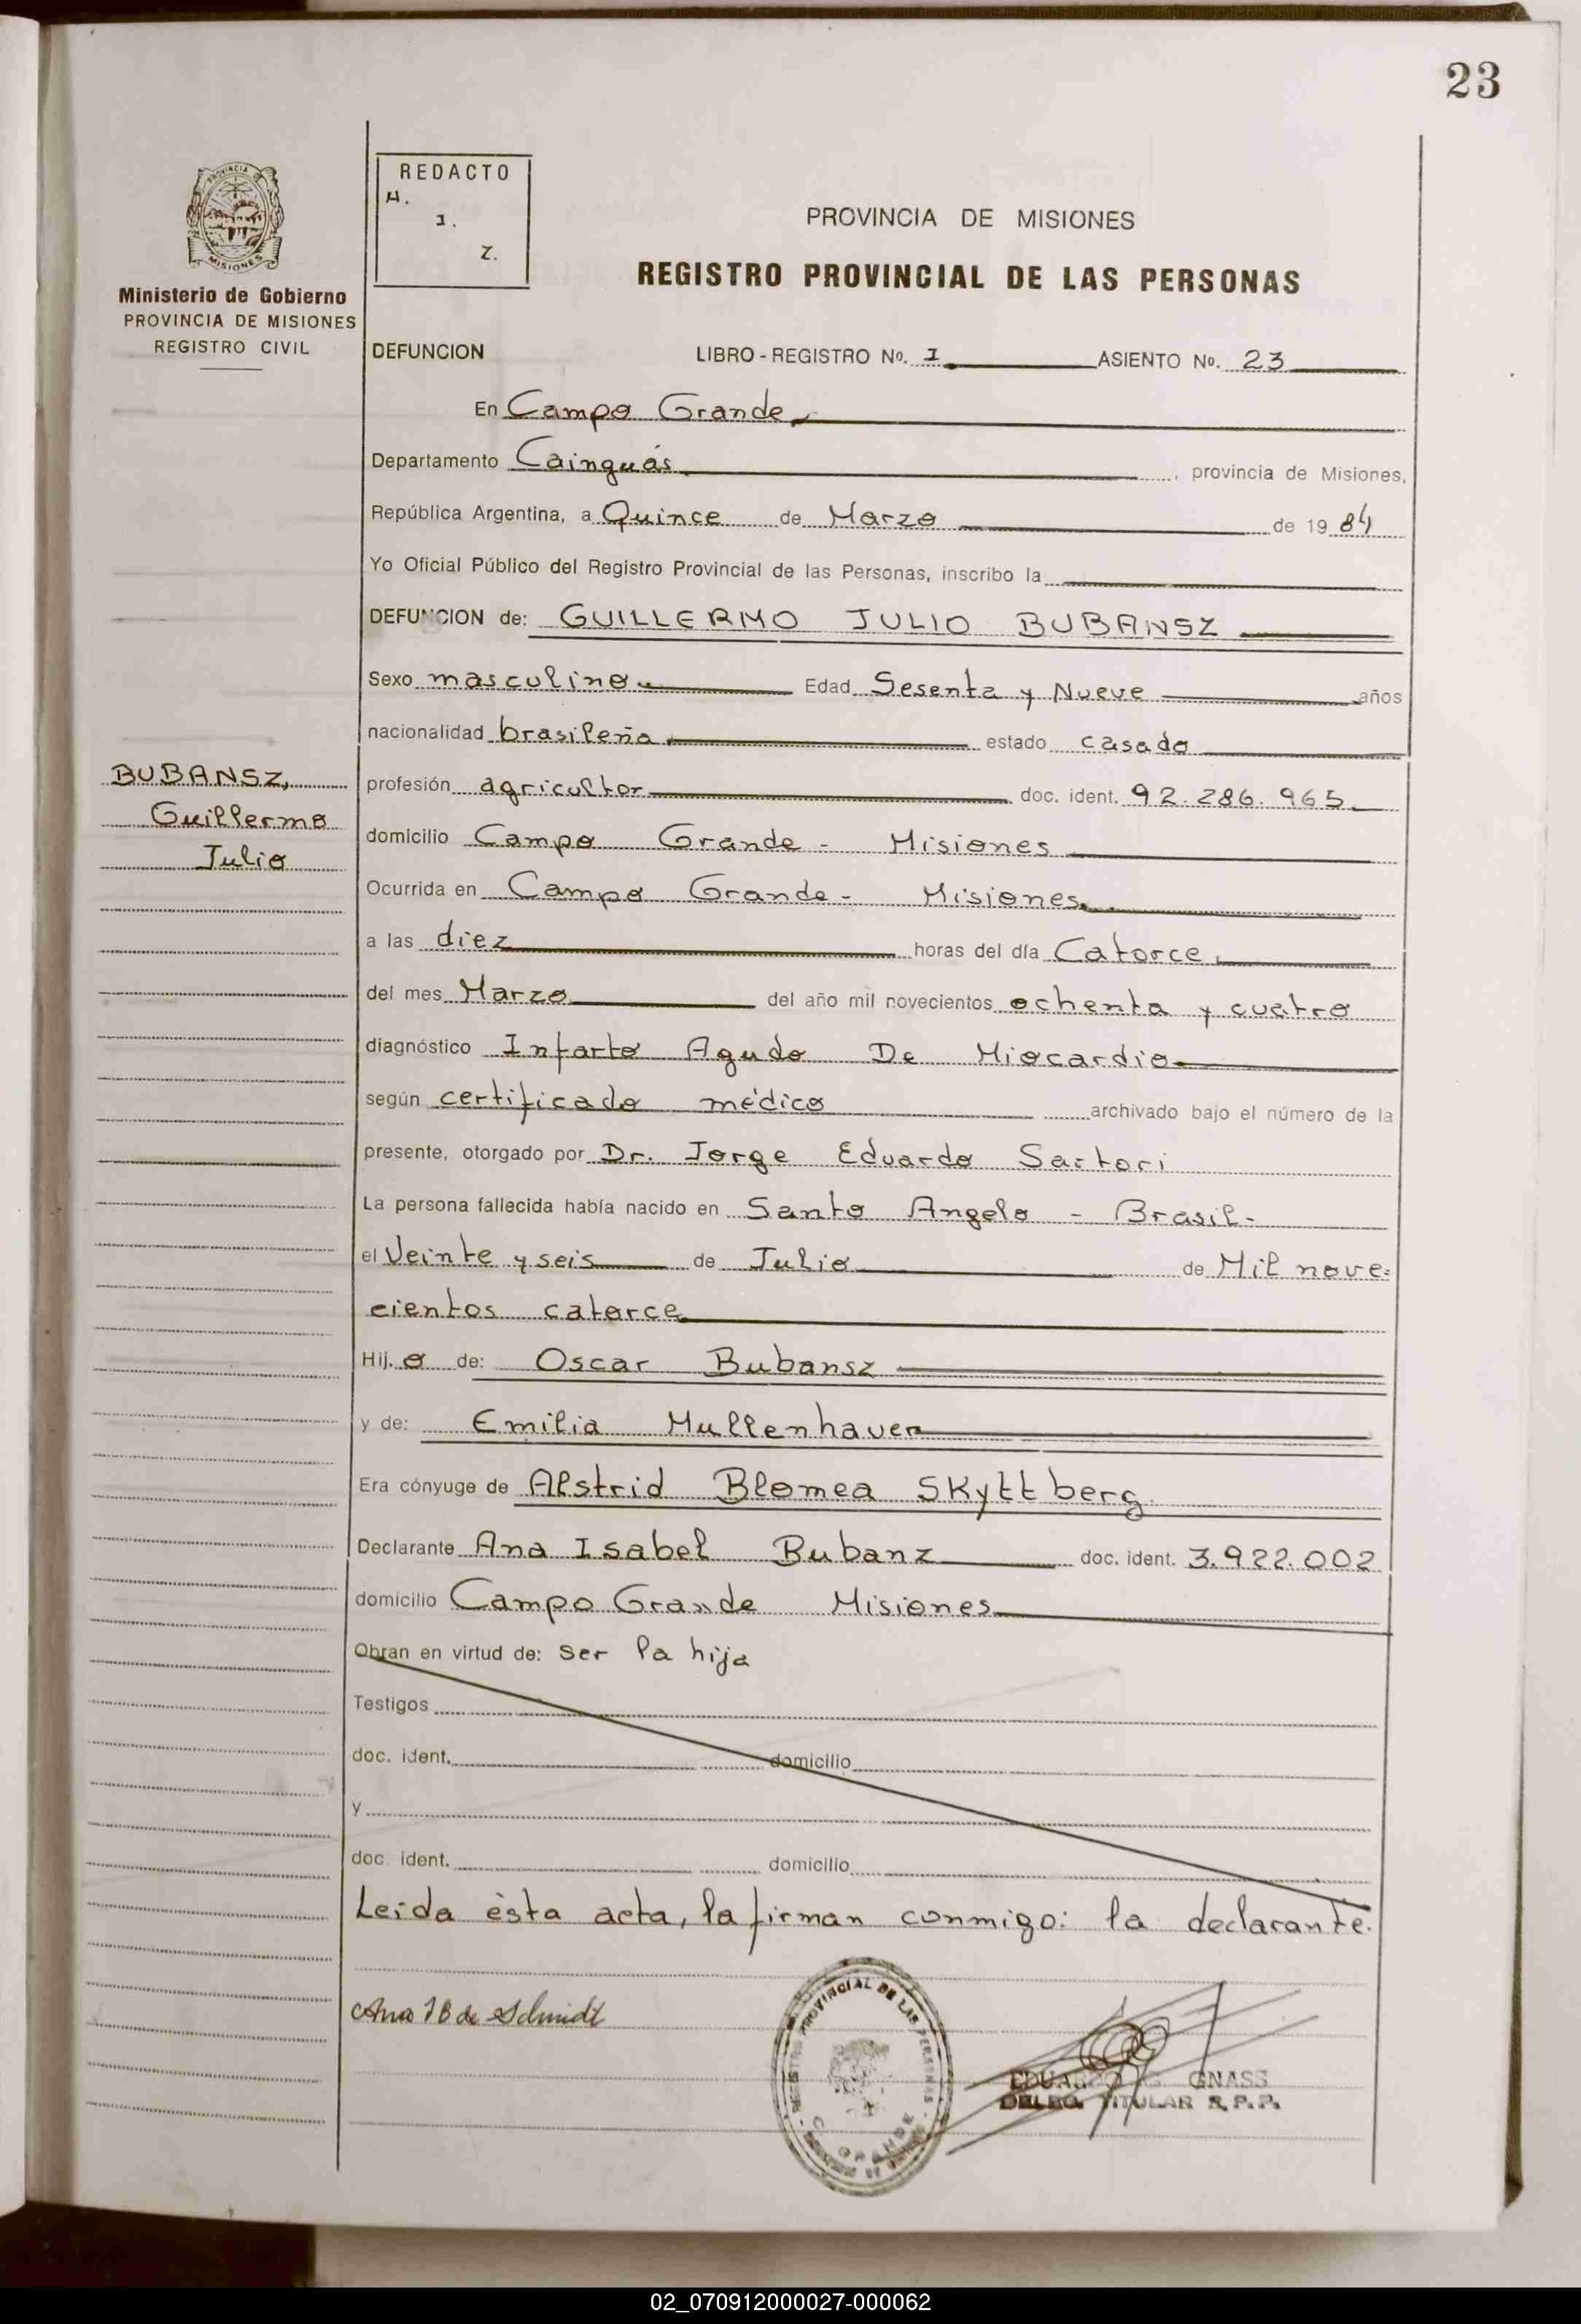 23
PROVINCIA DE
MISIONES
Ministerio de Gobierno
PROVINCIA DE MISIONES
REGISTRO CIVIL
REDACTO
H.
I.
Z.
PROVINCIA DE MISIONES
REGISTRO PROVINCIAL DE LAS PERSONAS
DEFUNCION LIBRO - REGISTRO Nº. I ASIENTO Nº. 23
En Campo Grande
Departamento Cainguás, provincia de Misiones,
República Argentina, a Quince de Marzo de 1984
Yo Oficial Público del Registro Provincial de las Personas, inscribo la
DEFUNCION de: GUILLERMO JULIO BUBANSZ
Sexo masculino Edad Sesenta y Nueve años
nacionalidad brasileña estado casado
BUBANSZ,
Guillermo
Julio
profesión agricultor doc. ident. 92.286.965
domicilio Campo Grande - Misiones
Ocurrida en Campo Grande - Misiones
a las diez horas del día Catorce
del mes Marzo del año mil novecientos ochenta y cuatro
diagnóstico Infarto Agudo De Miocardio
según certificado médico archivado bajo el número de la
presente, otorgado por Dr. Jorge Eduardo Sartori
La persona fallecida había nacido en Santo Angelo - Brasil-
el Veinte y seis de Julio de Mil nove=
cientos catorce
Hij. o de: Oscar Bubansz
y de: Emilia Mullenhaver
Era cónyuge de Alstrid Blomea Skyttberg
Declarante Ana Isabel Bubanz doc. ident. 3.922.002
domicilio Campo Grande Misiones
Obran en virtud de: ser la hija
Testigos
doc. ident. domicilio
y
doc. ident. domicilio
Leida ésta acta, la firman conmigo: la declarante.
Ana I B de Schmidt
PROVINCIAL DE LAS PERSONAS
GNASS
DELEG. TITULAR R.P.P.
02_070912000027-000062